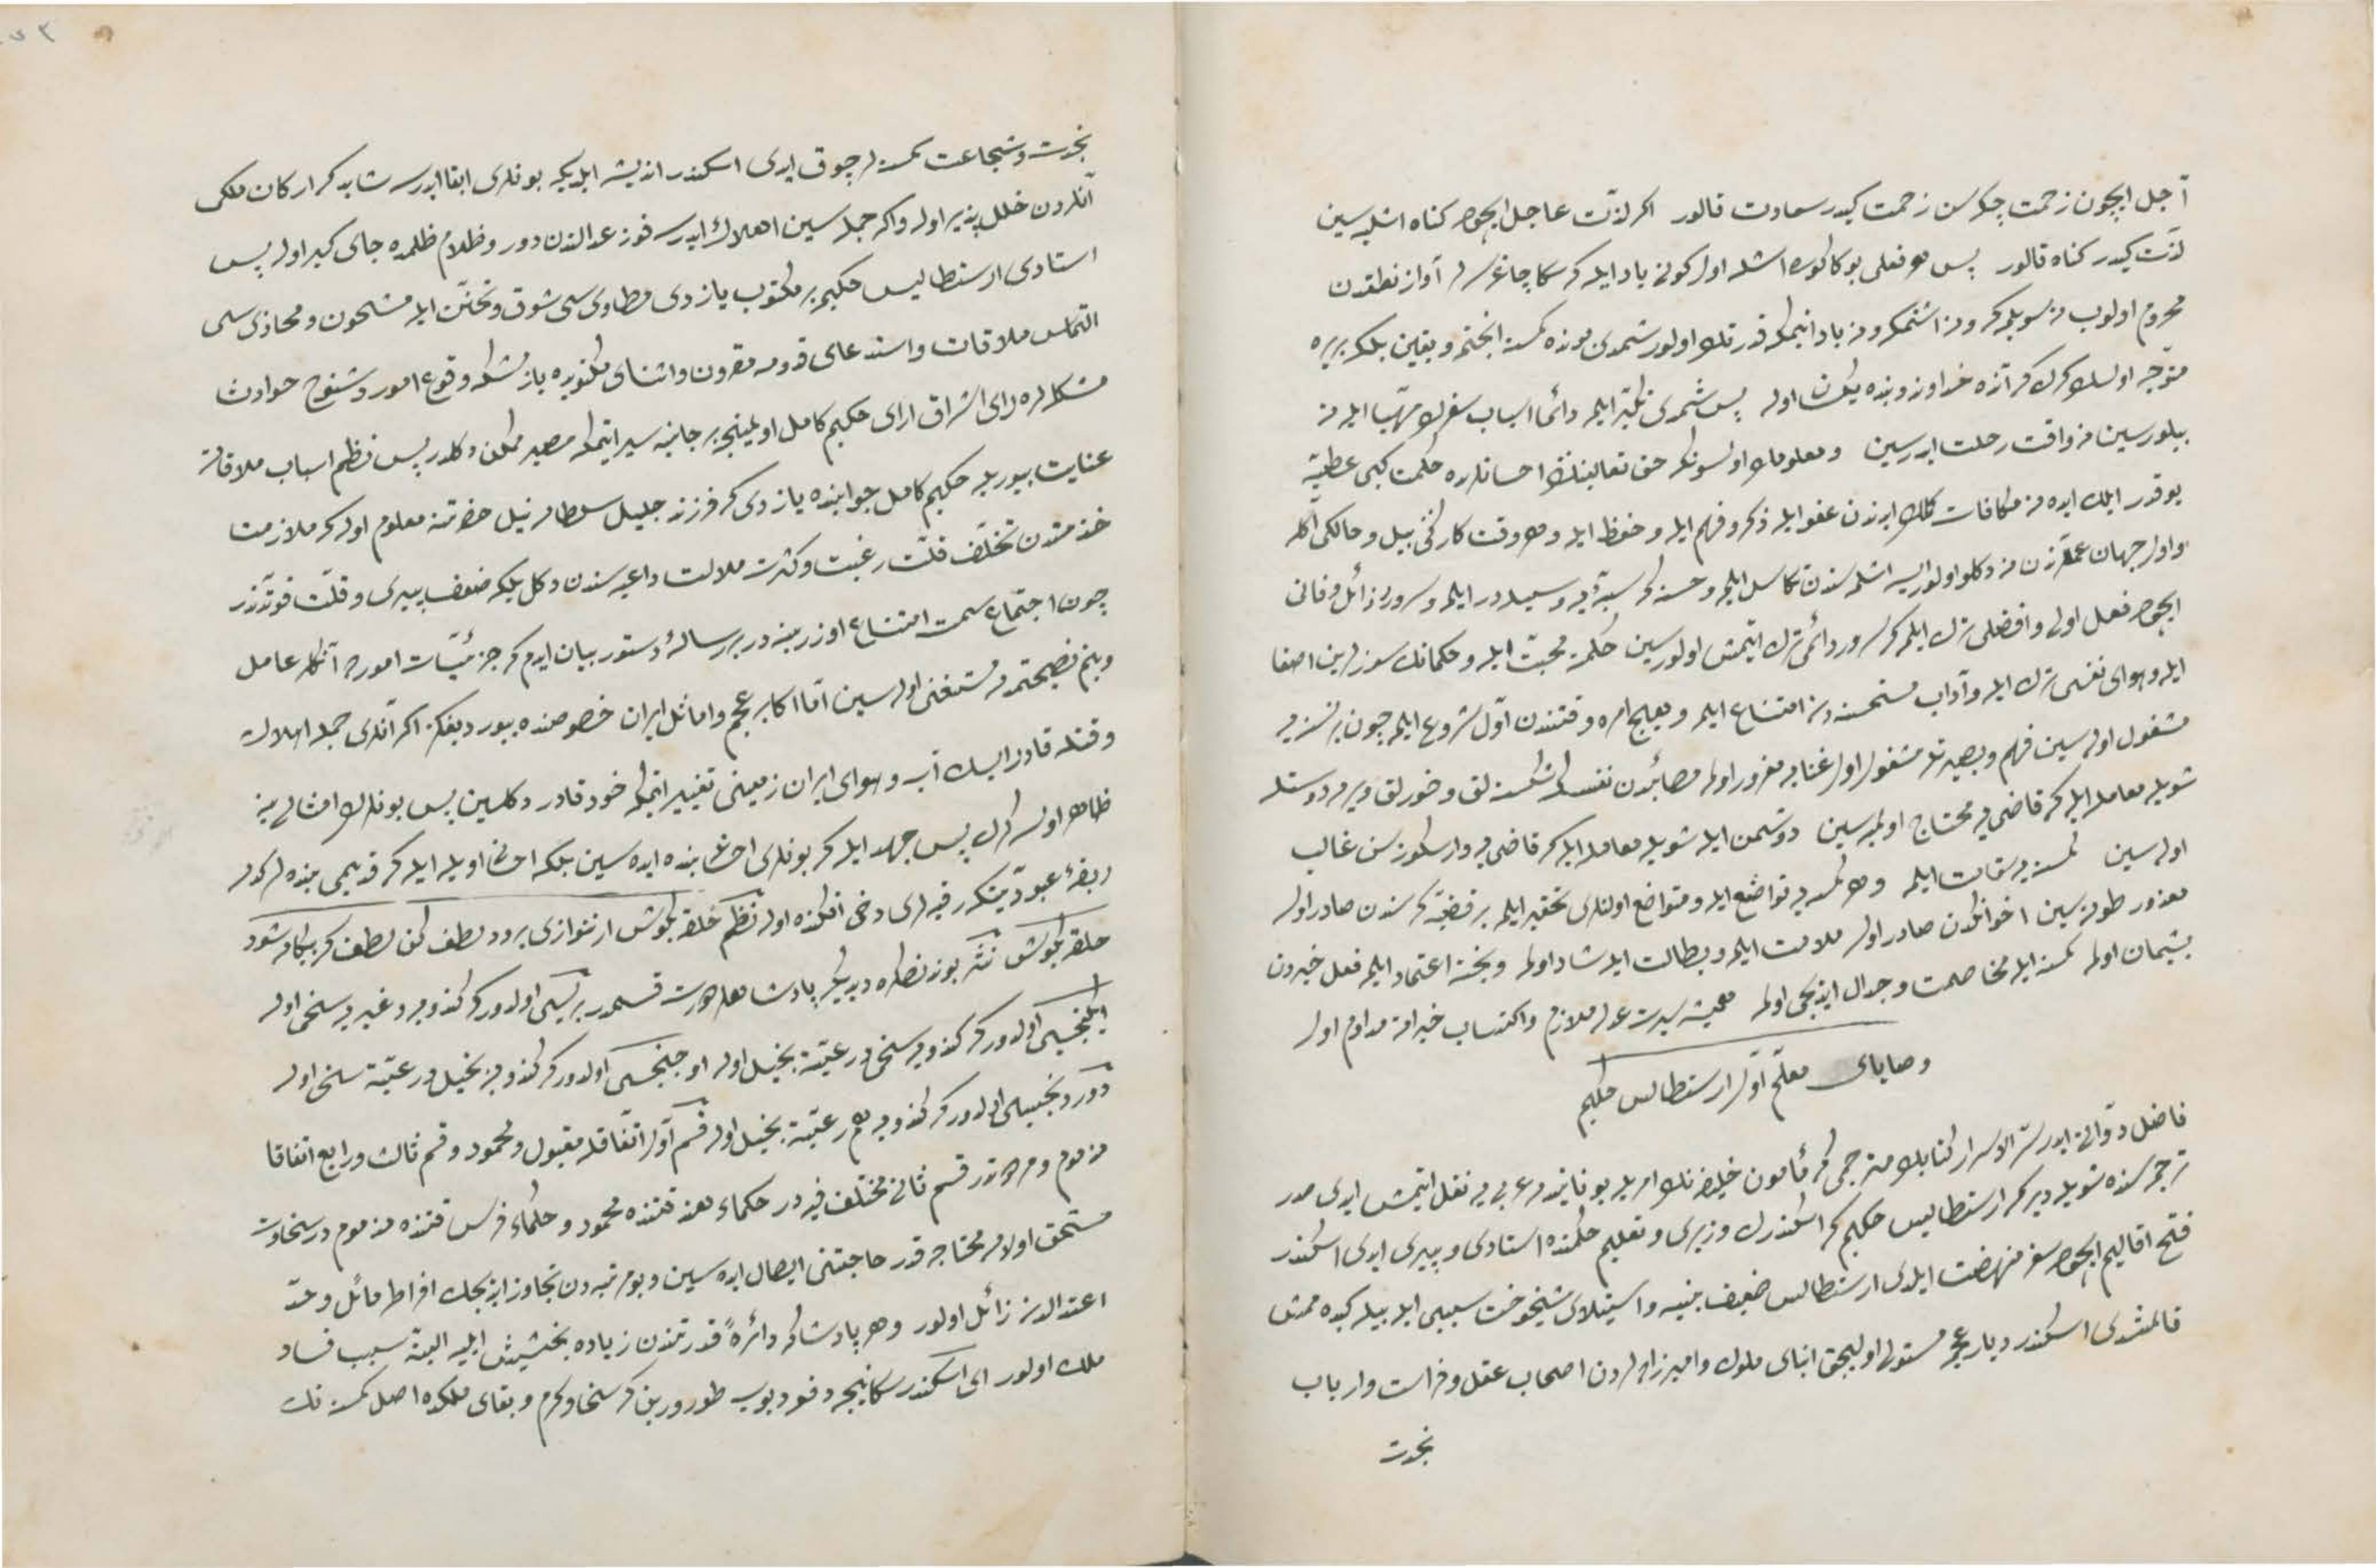 آجل ایچون زحمت چکرسن زحمت کیدر سعادت قالور اکر لذت عاجل ایچون کناه اشلرسین
لذت کیدر کناه قالور پس هر فعلی بوکا کوره اشله اول کونی یاد ایله که سکا چاغرلر آواز نطقدن
محروم اولوب نه سویلمکه و نه اشتمکه و نه یاد اتمکه قدرتک اولور شمدی بونده کمسه انجتمه و یقین بلکه بر یره
متوجه اولسک کرک که آنده خداوند و بنده یکسان اولر پس شمدی تکبر ایلمه دائما اسباب سفرک مهیا ایله نه
بیلورسین نه وقت رحلت ایدرسین و معلومک اولسونکه حق تعالینک احسانلرنده حکمت کبی عطیه
یوقدر ایلک ایدنه مکافات ایله کملک ایدن عفو ایله ذکر و فهم ایله و حفظ ایله و هر وقت کارکنی بیل و حالکی اکله
و اول جهان عملرندن نه دکلو اولورایسه اشلمه سندن تکاسل ایلمه و حسنه کی سیئه یه وسیله در ایلمه و سرور زائل و فانی
ایچون فعل اولی و افضلی ترک ایلمه که سرور دائمی ترک ایتمش اولورسین حکمته محبت ایله و حکمانک سوزلرین اصغا
ایله و هوای نفسی ترک ایله و آداب مستحسنه دن امتناع ایلمه و هیچ امره وقتندن اول شروع ایلمه چون بر نسنه یه
مشغول اولسین فهم و بصیرتله مشغول اول غنایه مغرور اولمه مصائبدن نفسکه شکسته لق و خورلق ویرمه دوستله
شویله معامله ایله که قاضی یه محتاج اولمیه سین دوشمن ایله شویله معامله ایله که قاضی یه وارسکوز سن غالب
اوله سین کمسه یه سفاهت ایلمه و هر کمسه یه تواضع ایله و متواضع اولنلری تحقیر ایلمه بر قضیه که سندن صادر اولر
معذور طوته سین اخوانکدن صادر اولر ملامت ایلمه و بطالت ایله شاد اولمه و بخته اعتماد ایلمه فعل خیردن
پشیمان اولمه کمسه ایله مخاصمت و جدال ایدیجی اولمه همیشه سیرت عدل ملازم و اکتساب خیراته مداوم اول
وصایای معلم اول ارسطالس حکیم
فاضل دوانی ایدر سر الاسرار کتابک مترجمی که مأمون خلیفه نک امریله یونانیدن عربی یه نقل ایتمش ایدی صدر
ترجمه سنده شویله دیر که ارسطالیس حکیم که اسکندرک وزیری و تعلیم حکمتده استادی و پیری ایدی اسکندر
فتح اقالیم ایچون سفره نهضت ایلدی ارسطالس ضعیف بنیه و استیلای شیخوخت سببی ایله بیله کیده ممش
قالمشدی اسکندر دیار عجمه مستولی اولیجق ابنای ملوک و امیرزاده لردن اصحاب عقل و فراست و ارباب
نجدت
نجدت و شجاعت کمسه لر چوق ایدی اسکندر اندیشه ایلدیکه بونلری ابقا ایدرسه شاید که ارکان ملکی
آنلردن خلل پذیر اولر و اکر جمله سین اهلاک ایدرسه فوز عدالتدن دور و ظلام ظلمده جای کیر اولر پس
استادی ارسطالیس حکیمه بر مکتوب یازدی مطاوی سی شوق و تحنن ایله مشحون و محاذی سی
التماس ملاقات و استدعای قدومه مقرون و اثنای مکتوبده یازمشکه وقوع امور و سنوح حوادث
مشکللره رای اشراق ارای حکیم کامل اولمینجه بر جانبه سیر ایتمک میسر ممکن دکلدر پس نظم اسباب ملاقاته
عنایت بیوریله حکیم کامل جوابنده یازدی که فرزند جلیل سلطان نبیل حضرتنه معلوم اوله که ملازمت
خدمتدن تخلف قلت رغبت و کثرت ملالت داعیه سندن دکل بلکه ضعف پیری و قلت قوتدندر
چون اجتماع سمت امتناع اوزرینه در بر رساله دستور بیان ایدم که جزئیات امورده آنکله عامل
و بنم نصیحتمدن مستغنی اولسین اما اکابر عجم و اماثل ایران خصوصنده بیوردیغکز اکر آنلری جمله اهلاک
و قتله قادر ایسک آب و هوای ایران زمینی تغییر اتمکه خود قادر دکلسین پس بونلرک امثالی ینه
ظاهر اولسه کرک پس جهد ایله که بونلری احسانله بنده ایده سین بلکه احسانی اویله ایله که قدیمی بنده لرکدر
ربقه عبودیتکه رقبه لری دخی افکنده اوله نظم حلقه بکوش ار ننوازی برود لطف کن لطف که بیکانه شود
حلقه بکوش نثر یونان نصلده دیدیلر پادشاهلر درت قسمدر بریسی اولدور که کندویه و غیریه سخی اولر
ایکنجیسی اولدور که کندویه سخی و رعیته بخیل اولر اوچنجیسی اولدور که کندویه بخیل و رعیته سخی اولر
دوردنجیسی اولدور که کندویه هم رعیته بخیل اولر قسم اول اتفاقله مقبول و محمود و قسم ثالث و رابع اتفاقا
مذموم و مردوددر قسم ثانی مختلف فیه در حکماء هند قتنده محمود و حکماء فرس قتنده مذمومدر سخاوت
مستحق اولانه محتاج قدر حاجتنی ایصال ایده سین و بو مرتبه دن تجاوز ایدیجک افراطه مائل و حد
اعتدالدن زائل اولور و هر پادشاه که دائره قدرتندن زیاده بخشیش ایلیه البته سبب فساد
ملک اولور ای اسکندر سکا نیجه دفعه دیوب طوررین که سخا و کرم و بقای ملکده اصل کمسه نک